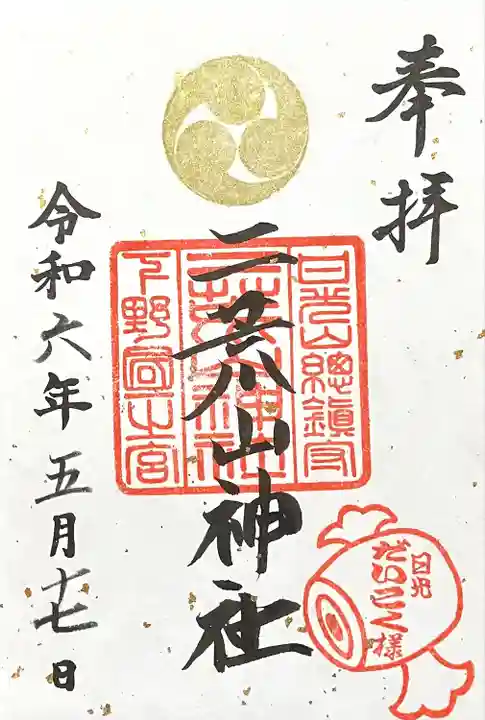 奉拝
日光山總鎮守
二荒山神社
二荒山神社
下野國一宮
令和六年五月十七日
日光
だいこく様